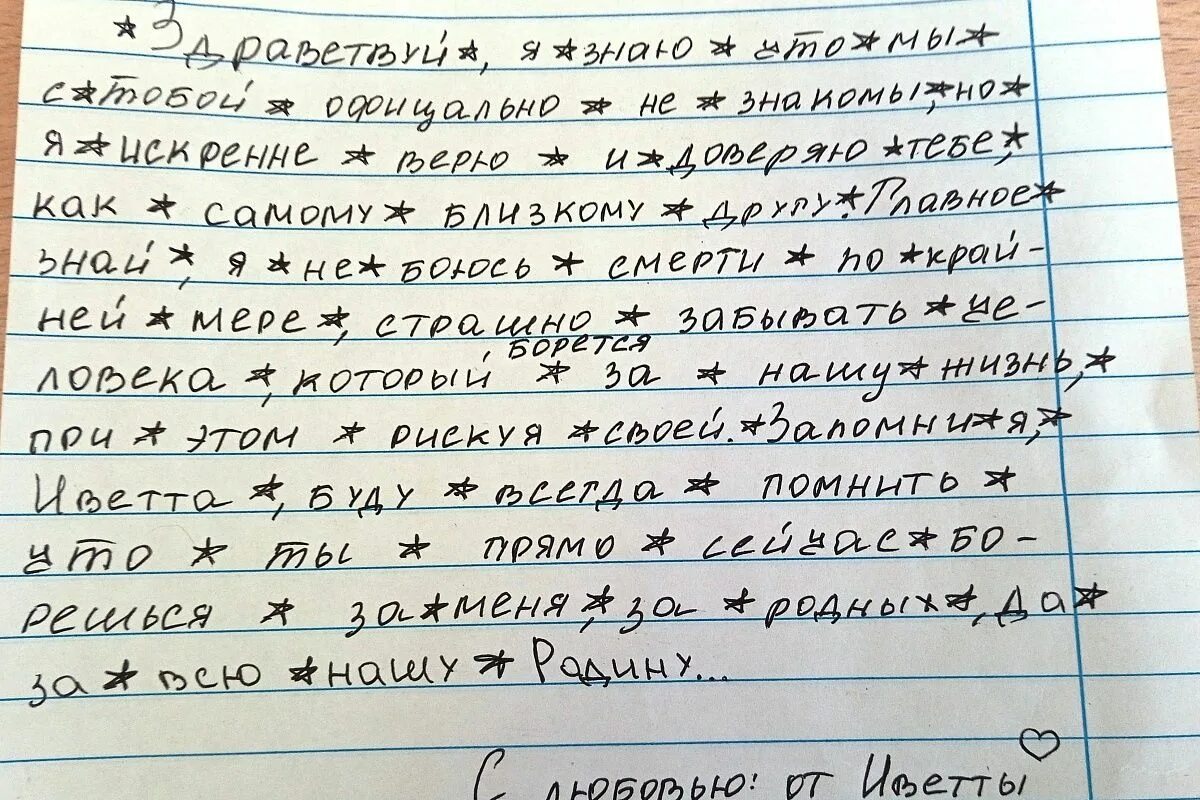 *Здраветвуй*, я*знаю*что*мы*
с*тобой*офоицально*не*знакомы*,но*
я*искренне*верю*и*доверяю*тебе,*
как*самому*близкому*другу*.Главное*
знай*, я*не*боюсь*смерти*по*край-
ней*мере*, страшно*забывать*че-
борется
ловека*, который*за*нашу*жизнь,*
при*этом*рискуя*своей.*Запомни*я,*
Иветта*, буду*всегда*помнить*
что*ты*прямо*сейчас*бо-
решься*за*меня,*за*родных*, да*
за*всю*нашу*Родину...
С любовью: от Иветты ♡